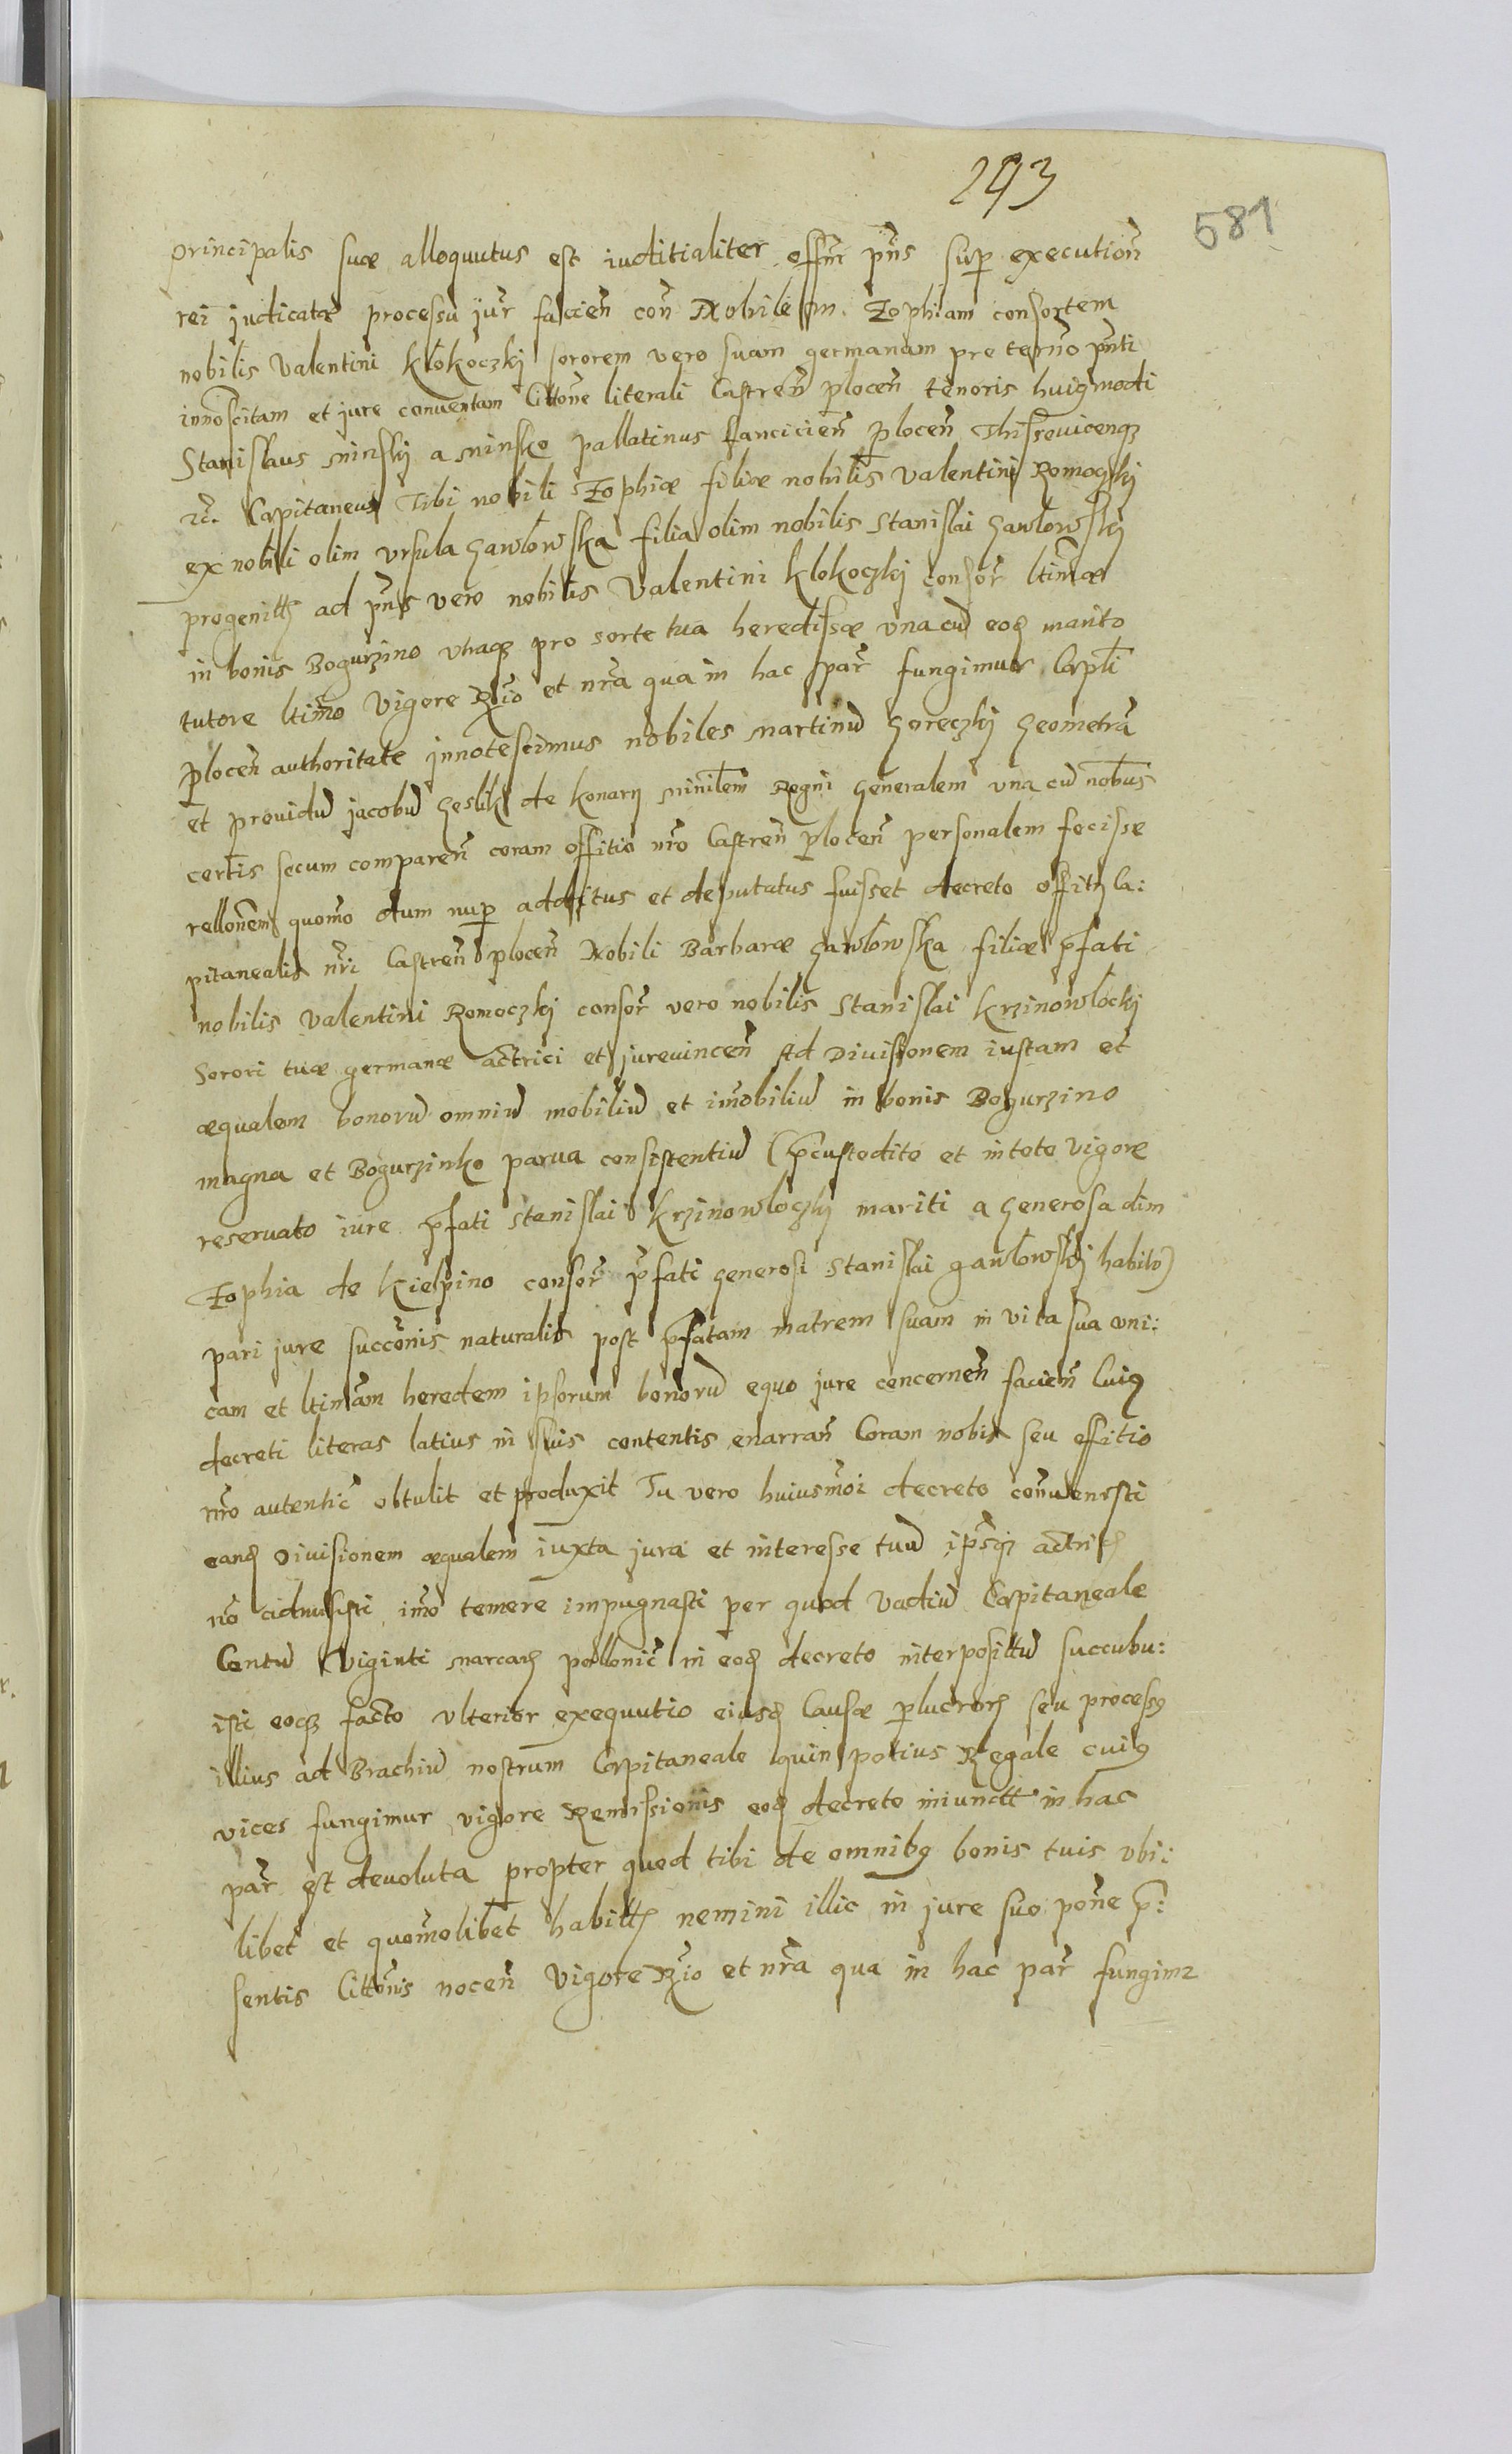 293
581
principalis suæ alloquutus est iuditialiter offm̃ pñs sup executioñ
rei judicatæ processu jur̃ facień coñ Nobilem Zophiam consortem
nobilis Valentini Klokoczkj sororem vero suam germanam pro termõ pñti
innoscitam et jure conuentam Cittõne literali Castreñ ploceñ tenoris huiq̃modi
Stanislaus Minskj a Minsko pallatinus Lancicień ploceñ
rc̃. Capitaneus Tibi nobili Zophiæ filiæ nobilis Valentini Romoczkj
ex nobili olim Vrsula Gawlowska filia olim nobilis Stanislai Gawlowskj
progenitt ad pñs vero nobilis Valentini Klokoczkj consor̃ ltimæ
in bonis Bogurzino vtraq pro sorte tua heredissæ vnacũ eod marito
tutore ltimo Vigore Rgio et nrã qua in hac par̃ fungimur Capli
ploceñ authoritate innotescimus nobiles Martinũ Goreczkj Geometrã
et prouidũ jacobũ Geslik de Konary Minilem Regni Generalem vna cũ nobus
certis secum compareñ coram offitio nr̃o Castreñ ploceñ personalem fecisse
rellonem quomo dum nup additus et deputatus fuisset decreto offitij Ca:
pitanealis nr̃i Castreñ ploceñ Nobili Barbaræ Gawlowska filiæ p̃fati
nobilis Valentini Romoczkj consor̃ vero nobilis Stanislai Krzinowlockj
Sorori tuæ germanæ actrici et jureuinceñ Ad Diuisionem iustam et
æqualem bonorũ omniũ mobiliũ et im̃obiliũ in bonis Bogurzino
magna et Bogurzinko parua consistentiũ (p̃custodito et in toto vigore
reseruato iure p̃fati Stanislai Krzinowloczkj mariti a Generosa olim
Zophia de Kielpino consor̃ p̃fati Generosi Stanislai gawlowskj habito)
pari jure succõnis naturalis post p̃fatam matrem suam in vita sua vni:
cam et ltimam heredem ipsorum bonorũ equo jure concerneñ facień Cuiq
decreti literas latius in suis contentis enarrañ Coram nobis seu offitio
nr̃o autentic̃ obtulit et produxit Tu vero huiusm̃oi decreto conuenisti
eand Diuisionem æqualem iuxta jura et interesse tuũ ipsiq actrid
nõ admisisti imo temere impugnasti per quod Vadiũ Capitaneale
Centũ Viginti marcarũ pollonic̃ in eod decreto interposittũ succubu:
isti eoq facto vlterior exequutio eiusd Causæ plucror seu processq
illius ad Brachiũ nostrum Capitaneale quin potius Regale cuiq
vices fungimur vigore Remissionis eod decreto iniunctt in hac
par̃ est deuoluta propter quod tibi de omnibq bonis tuis vbi:
libet et quomolibet habitt nemini illic in jure suo pone p̃:
sentis Cittõnis noceñ Vigore Rgio et nrã qua in hac par̃ fungimz